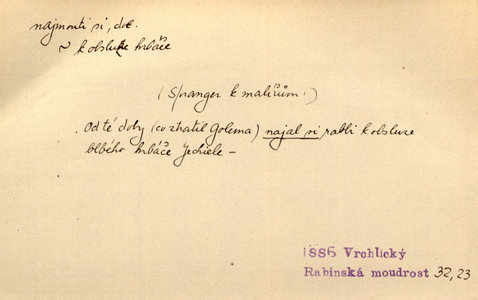 najmouti si, dok.
~ k obsluze hrbáče
(Spranger k malířům.)
Od té doby (co ztratil Golema) najal si rabbi k obsluze
blbého hrbáče Jechiele –
1886 Vrchlický
Rabínská moudrost 32,23